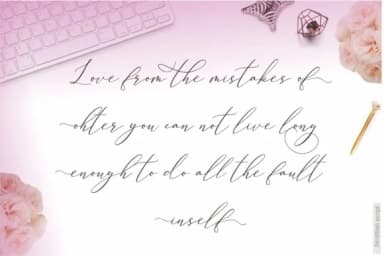 Love from the mistakes of
ohter you can not live long
enough to do all the fault
inself